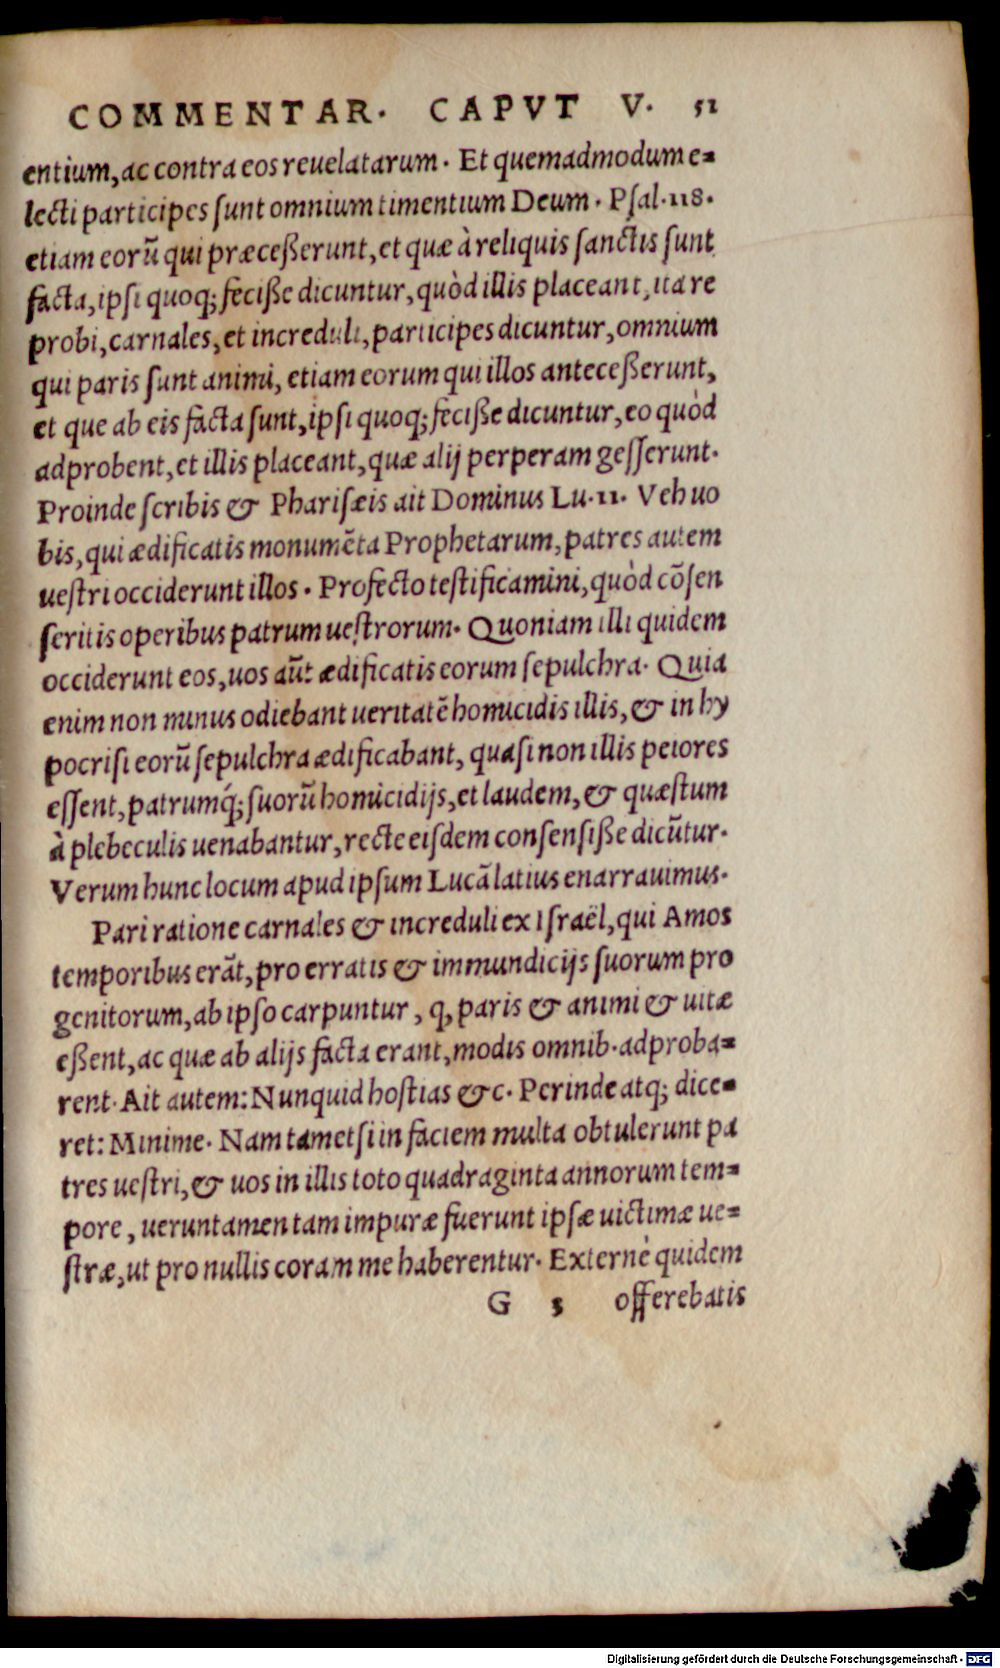 COMMENTAR. CAPVT V. 51
entium, ac contra eos reuelatarum. Et quemadmodum e=
lecti participes sunt omnium timentium Deum. Psal. 118.
etiam eorũ qui præceßerunt, et quæ à reliquis sanctis sunt
facta, ipsi quoq; feciße dicuntur, quòd illis placeant, ita re
probi, carnales, et increduli, participes dicuntur, omnium
qui paris sunt animi, etiam eorum qui illos anteceßerunt,
et que ab eis facta sunt, ipsi quoq; feciße dicuntur, eo quòd
adprobent, et illis placeant, quæ alij perperam gesserunt.
Proinde scribis & Pharisæis ait Dominus Lu. 11. Veh uo
bis, qui ædificatis monumẽta Prophetarum, patres autem
uestri occiderunt illos. Profecto testificamini, quòd cõsen
seritis operibus patrum uestrorum. Quoniam illi quidem
occiderunt eos, uos aũt ædificatis eorum sepulchra. Quia
enim non minus odiebant ueritatẽ homicidis illis, & in hy
pocrisi eorũ sepulchra ædificabant, quasi non illis peiores
essent, patrumq́; suorũ homicidijs, et laudem, & quæstum
à plebeculis uenabantur, recte eisdem consensiße dicũtur.
Verum hunc locum apud ipsum Lucã latius enarrauimus.
Pari ratione carnales & increduli ex Israël, qui Amos
temporibus erãt, pro erratis & immundicijs suorum pro
genitorum, ab ipso carpuntur, q, paris & animi & uitæ
eßent, ac quæ ab alijs facta erant, modis omnib. adproba=
rent. Ait autem: Nunquid hostias &c. Perinde atq; dice=
ret: Minime. Nam tametsi in faciem multa obtulerunt pa
tres uestri, & uos in illis toto quadraginta annorum tem=
pore, ueruntamen tam impuræ fuerunt ipsæ uictimæ ue=
stræ, ut pro nullis coram me haberentur. Externè quidem
G 3 offerebatis
Digitalisierung gefördert durch die Deutsche Forschungsgemeinschaft - DFG